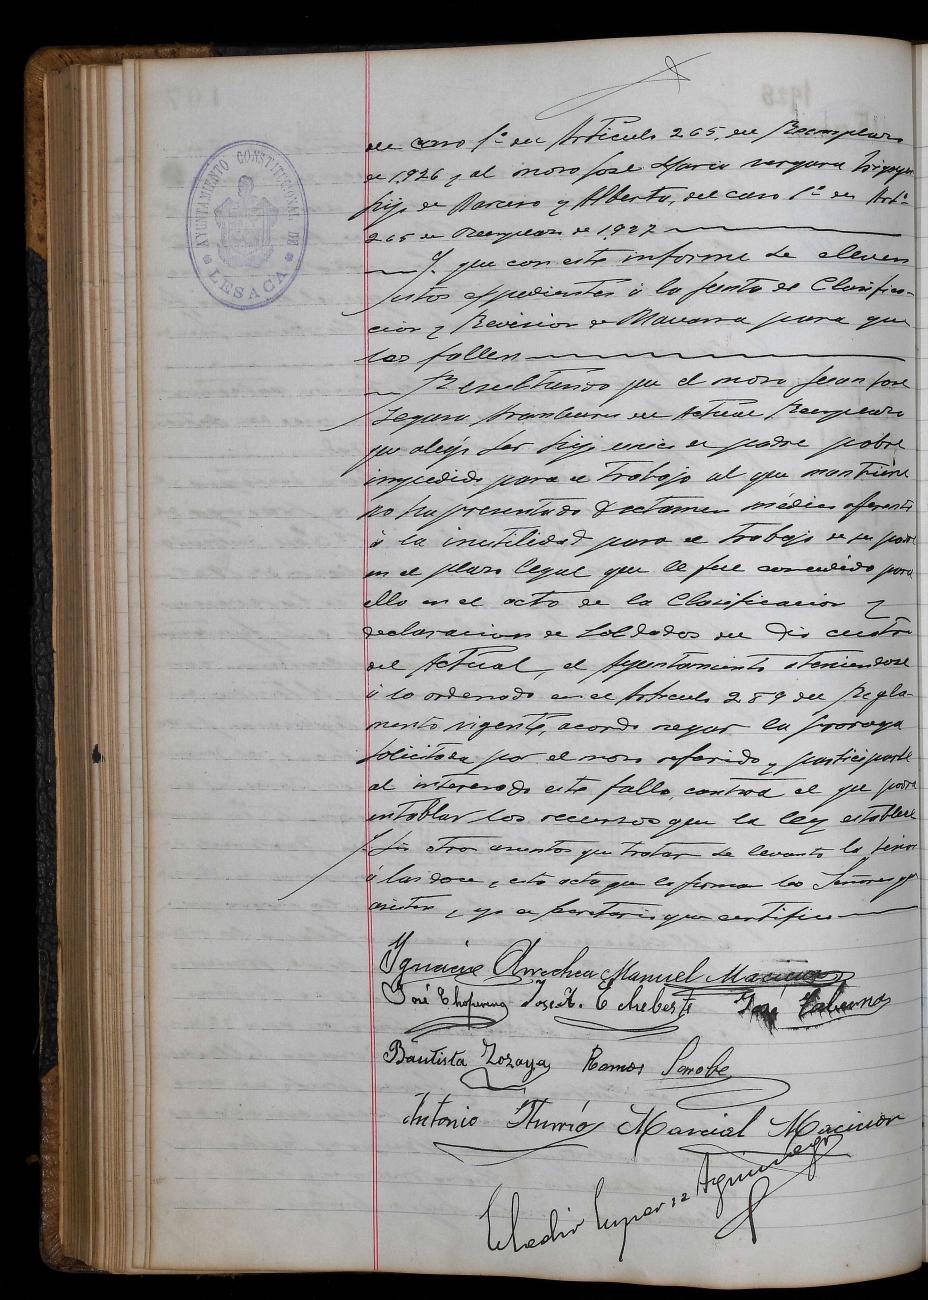 AYUNTAMIENTO CONSTITUCIONAL DE LESACA
del caso 1º del Artículo 265, del Reemplazo
de 1926 y al mozo José María Vergara
hijo de Narciso y Alberta, del caso 1º del Artº
265 del Reemplazo de 1927
Y que con este informe se eleven
estos expedientes á la Junta de Clasifica-
ción y Revisión de Navarra para que
los fallen
Resultando que el mozo Juan José
Segura del actual Reemplazo
que alegó ser hijo unico de padre pobre
impedido para el trabajo al que mantiene
no ha presentado dictamen médico referente
á la inutilidad para el trabajo de su padre
en el plazo legal que le fue concedido para
ello en el acto de la Clasificacion y
declaracion de Soldados del dia cuatro
del Actual, el Ayuntamiento ateniendose
á lo ordenado en el Artículo 289 del Regla-
mento vigente, acordo negar la prorroga
solicitada por el mozo referido y participarle
al interesado este fallo, contra el que podra
entablar los recursos que la ley establece
Y sin otros asuntos que tratar se levanto la sesion
á las doce y esta acta que la firman los Señores que
asisten y yo el Secretario que certifico
Ignacio Arrechea Manuel Macicior
José José A. Echeberti José Taberna
Bautista Zozaya Ramos Sarobe
Antonio Iturria Marcial Macicior
Eladio